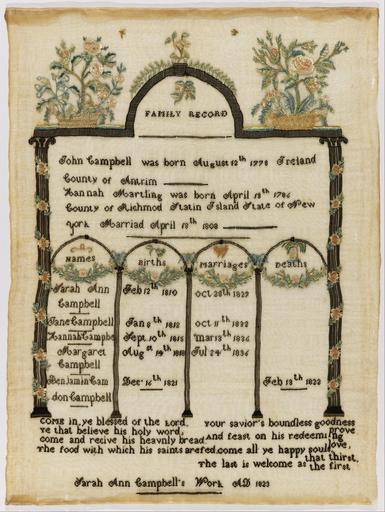 FAMILY RECORD
John Campbell was born August 12th 1778 Ireland
County of Antrim
Hannah Martling was born April 18th 1786
County of Richmod Statin Island State of New
York Marriad April 13th 1808
Names Births Marriages Deaths
Sarah Ann Campbell Feb 12th 1810 Oct 28th 1829
Jane Campbell Jan 8th 1812 Oct 11th 1832
Hannah Campbe Sept 10th 1815 Mar 13th 1836
Margaret Campbell Aug 14th 1818 Jul 24th 1836
Benjamin Cam Dec 16th 1821 Feb 13th 1822
don Campbell
Come in, ye blessed of the Lord,
ye that believe his holy word,
come and recive his heavnly bread
The food with which his saints are fed.
your savior's boundless goodness prove
And feast on his redeeming love,
come all ye happy souls that thirst,
The last is welcome as the first
Sarah Ann Campbell's Work AD 1823